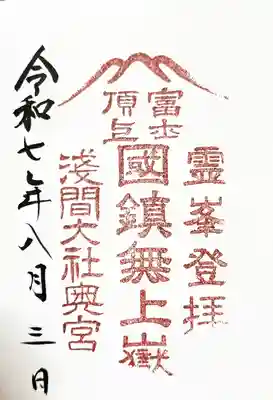 霊峯登拝
富士
頂上
國鎮無上嶽
淺間大社奥宮
令和七年八月三日